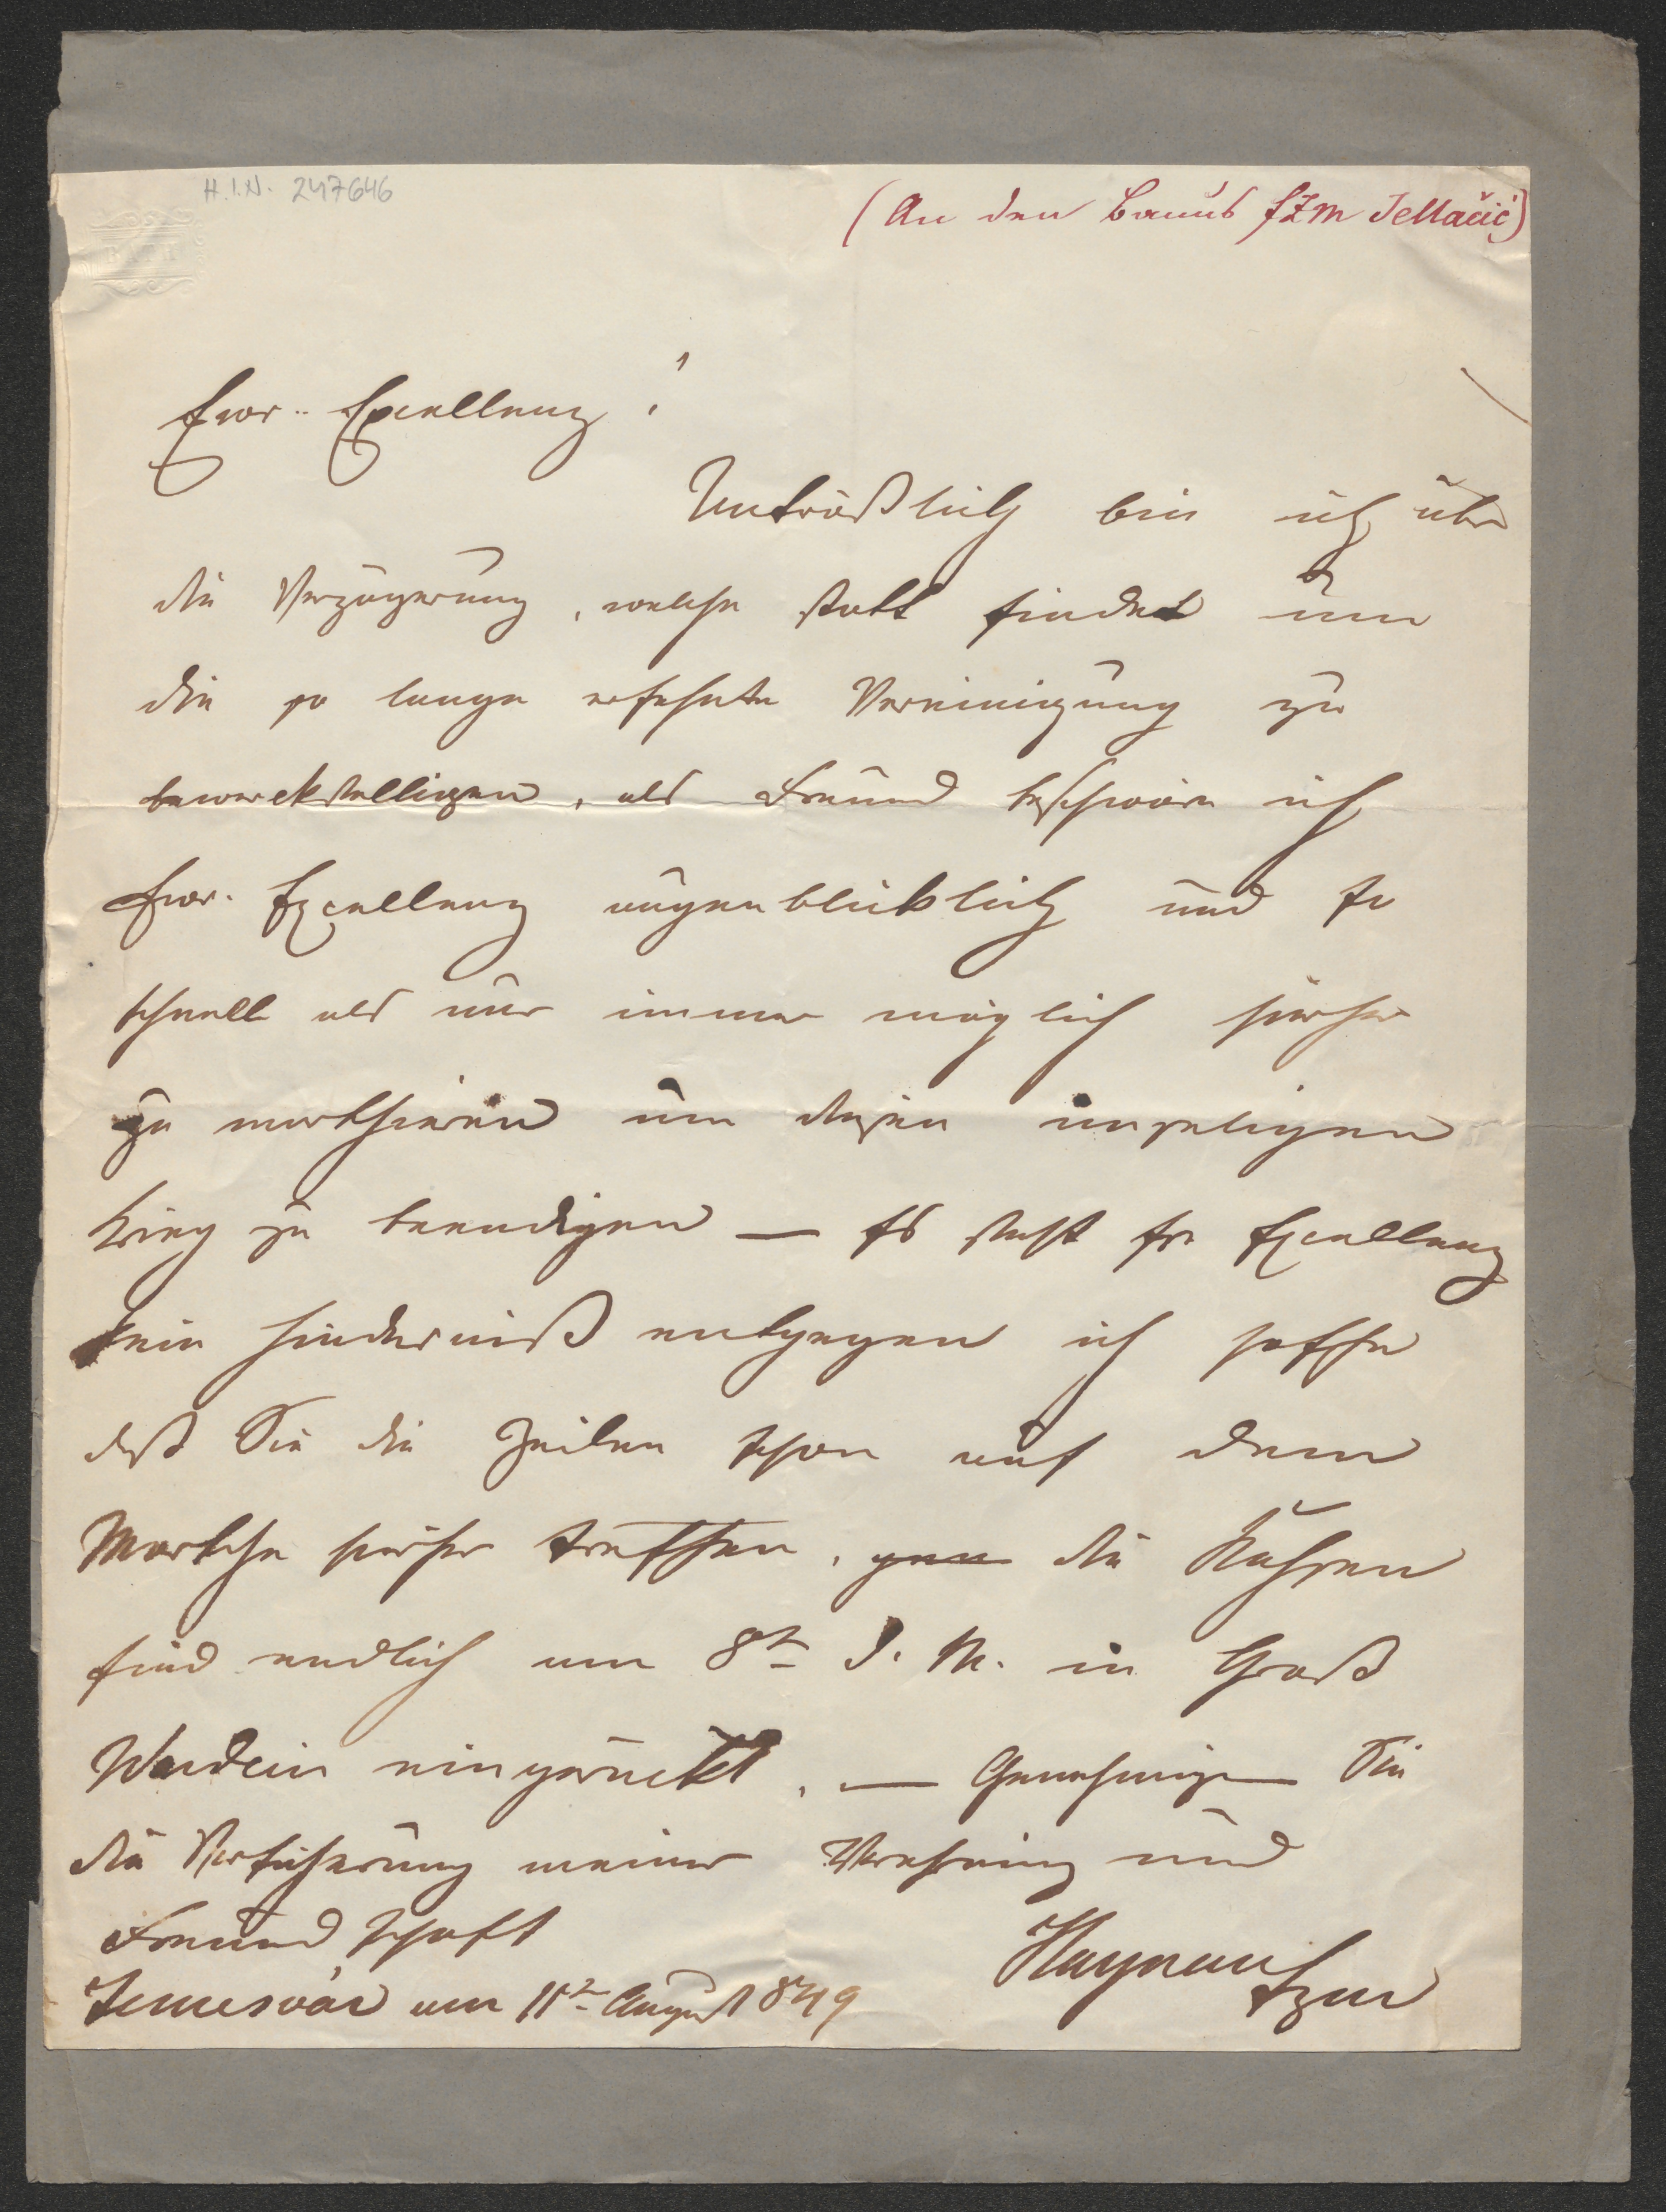 H.I.N. 247646
(An den Banus FZM Jellačić)
Euer.. Excellenz!
Untröstlich bin ich über
die Verzögerung, welche statt findet um
die so lange ersehnte Vereinigung zu
bewerckstelligen, als Freund beschwöre ich
Euer. Excellenz augenbliklich und so
schnell als nur immer möglich hierher
zu marschieren um diesen unseligen
Krieg zu beendigen — Es steht Er Excellenz
kein Hinderniß entgegen ich hoffe
daß Sie die Zeilen schon auf dem
Marsche hierher treffen, die Russen
sind endlich am 8t d. M. in Groß
Wardein eingerückt, — Genehmigen Sie
die Versicherung meiner Verehrung und
Freundschaft
Haynau
Fzm
Temesvár am 11t August 849